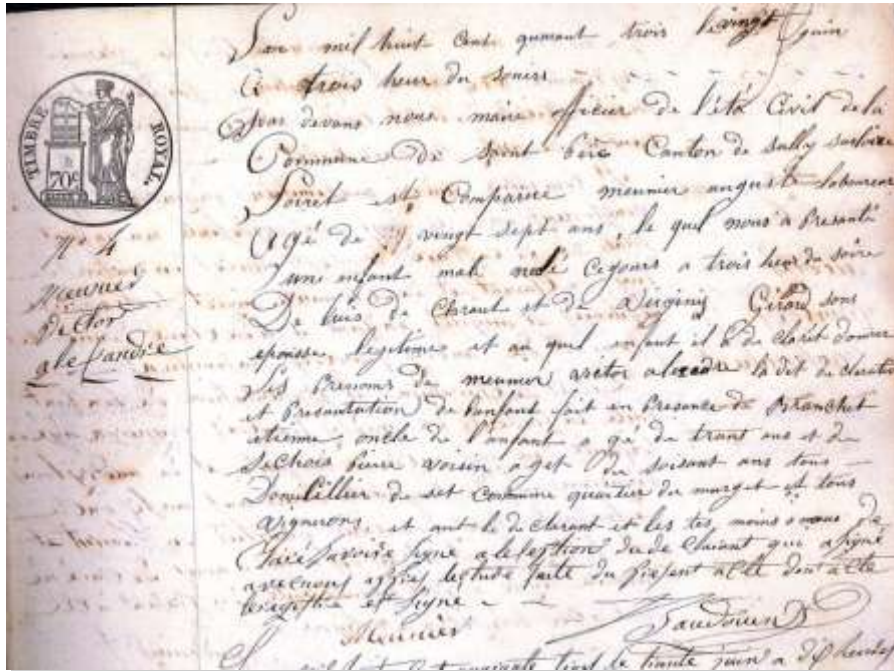 TIMBRE ROYAL.
70c
No 4
Meunier
Victor
alexandre
L'an mil huit Cent quarant trois le vingt juin
a trois heur du soire
par devans nous maire officier de l'éta Civil de la
Commune de Saint père Canton de Sully surloire
Loiret est Comparue meunier august laboureur
agé de vingt sept ans, le quel nous a Presanté
une enfant mal né cejours a trois heur du soire
De luis de claraut et de virginis Girard sons
epousse legitime et au quel enfant il a de claret donner
Les prenoms de meunier victor la dit de claration
et Presantation de lanfant fait en Presance de Branchet
etienne oncle de l'enfant a gé de trant ans et de
pierre voisin a get de soisant ans tous
Domicillier de set Commune quartier du et tous
vignerons, et ant le de clarent et les tes moins nous de
savoire signé a lexseption du de claraut qui a signé
avec nous après lecture faite du présent acte dont acte
et signé
Meunier
cent quarante trois le trante juin a